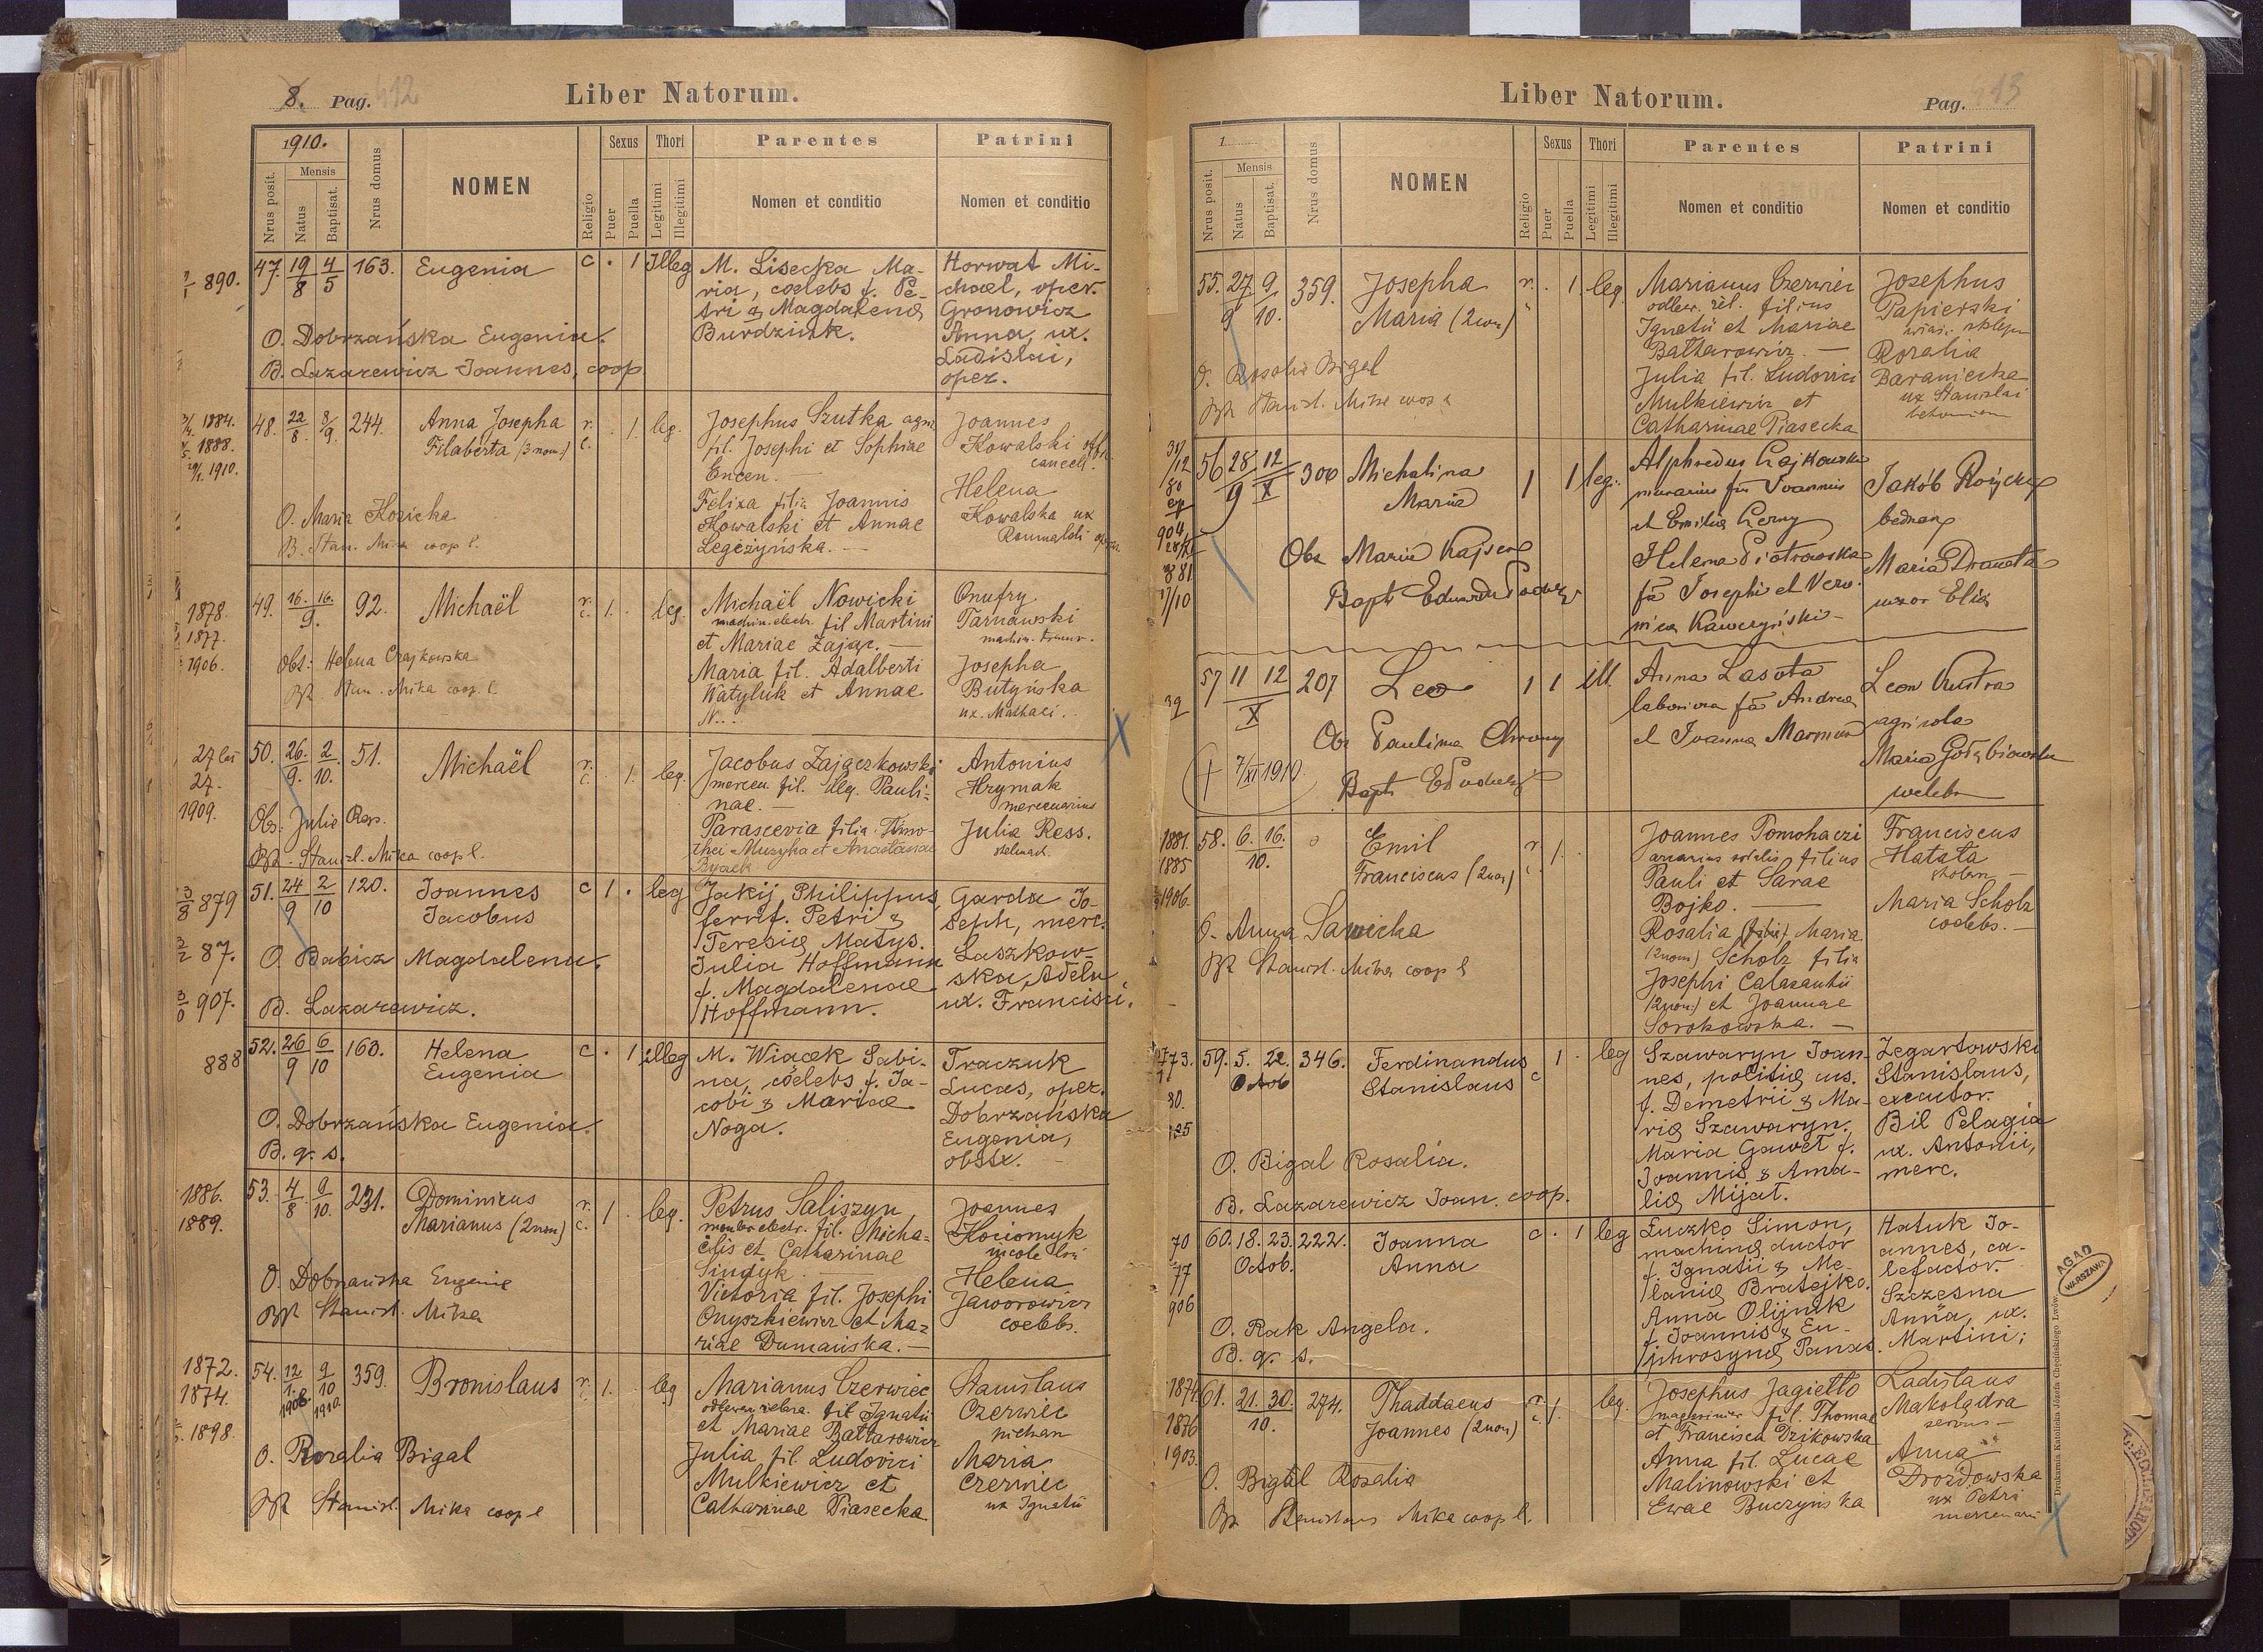 8. Pag. 412
Liber Natorum.
1910.
Nrus posit.
Mensis
Natus
Baptisat.
Nrus domus
NOMEN
Religio
Sexus
Puer
Puella
Thori
Legitimi
Illegitimi
Parentes
Nomen et conditio
Patrini
Nomen et conditio
890.
47. 19/8 4/5 163. Eugenia c . 1 Illeg
M. Lisecka Ma-
ria, coelebs f. Pe-
tri & Magdalena
Burdziak.
Horwat Mi-
chael, oper.
Gronowicz
Anna, ux.
Ladislai,
oper.
O. Dobrzańska Eugenia.
B. Lazarewicz Joannes, coop
1884.
1888.
1910.
48. 22/8. 8/9. 244. Anna Josepha r. c. . 1. leg.
Filaberta (3 nom.)
Josephus Szutka agr.
fil. Josephi et Sophiae
Encen.
Felixa filia Joannis
Kowalski et Annae
Legeżyńska. —
Joannes
Kowalski
cancell.
Helena
Kowalska ux
Romualdi
O. Maria Kozicka
B. Stan. Mika coop l.
1878.
1877.
1906.
49. 16. 16./9. 92. Michaël r. c. 1. . leg.
Michaël Nowicki
machin. electr. fil Martini
et Mariae Zając. —
Maria fil. Adalberti
Watyluk et Annae
N...
Onufry
Tarnawski
machin. tramw.
Josepha
Butyńska
ux. Mathaei.
Obs: Helena Czajkowska
Bp. Stan. Mika coop. l.
27.
1909.
50. 26./9. 2./10. 51. Michaël r. c. 1. leg.
Jacobus Zajączkowski
mercen. fil. Illeg. Pauli-
nae. —
Parascevia filia Timo-
thei Muzyka et Anastasiae
Antonius
Hrymak
mercenarius
Julia Ress.
Obs: Julia Ress.
Bp. Stanisl. Mika coop l.
879
87.
907.
51. 24/9 2/10 120. Joannes c 1 . leg
Jacobus
Jakij Philippus,
ferrif. Petri &
Teresia Matys.
Julia Hoffmann
f. Magdalenae
Hoffmann.
Garda Jo-
seph, merc.
Laszkow-
ska, Adela
ux. Francisci.
O. Babicz Magdalena.
B. Lazarewicz.
888
52. 26/9 6/10 160. Helena c . 1 illeg
Eugenia
M. Wiącek Sabi-
na, coelebs f. Ja-
cobi & Mariae
Noga.
Traczuk
Lucas, oper.
Dobrzańska
Eugenia,
obstx.
O. Dobrzańska Eugenia.
B. q. s.
1886.
1889.
53. 4/8 9/10. 231. Dominicus r. c. 1 . leg.
Marianus (2 nom)
Petrus Saliszyn
electr. fil. Micha-
ëlis et Catharinae
Sindyk
Victoria fil. Josephi
Onyszkiewicz et Ma-
riae Dumańska. —
Joannes
Kociomyk
Helena
Jaworowicz
coelebs.
O. Dobrzańska Eugenia
Bp Stanisl. Mika
1872.
1874.
1898.
54. 12/1. 1908. 9/10 1910. 359. Bronislaus r. c. 1. leg
Marianus Czerwiec
fil Ignatii
et Mariae Baltarowicz
Julia fil. Ludovici
Mulkiewicz et
Catharinae Piasecka
Stanislaus
Czerwiec
Maria
Czerwiec
ux Ignatii
O. Rozalia Bigal
Bp Stanisl. Mika coop l
Liber Natorum.
Pag. 413
1
Nrus posit.
Mensis
Natus
Baptisat.
Nrus domus
NOMEN
Religio
Sexus
Puer
Puella
Thori
Legitimi
Illegitimi
Parentes
Nomen et conditio
Patrini
Nomen et conditio
55. 27./9 9./10. 359. Josepha r. c . 1. leg.
Maria (2 nom)
Marianus Czerwiec
filius
Ignatii et Mariae
Baltarowicz. —
Julia fil. Ludovici
Mulkiewicz et
Catharinae Piasecka
Josephus
Papierski
Rozalia
Baraniecka
ux Stanislai
O. Rosalia Bigal
Bp Stanisl. Mika coop l
56 28/9 12/X 300 Michalina 1 1 leg.
Maria
Alphredus Czajkowski
murarius f. Joannis
et Emilia Czerny
Helena Piotrowska
f. Josephi et Vero-
nica Kawczyński —
Jakób Różycki
bednarz
Maria Draneta
uxor Elia
Obs Maria Kajser
Bapt. Eduardus
39
57 11 12/X 207 Leo 1 1 ill.
Anna Lasota
f. Andrea
et Joanna Marmur
Leon Kustra
agricola
Maria Gołębiowska
coelebs
Obs Paulina Chromy
† 7/XI 1910.
1881.
1885
1906.
58. 6. 16./10. 0 Emil r. c. 1. .
Franciscus (2 nom)
Joannes Pomohaczi
filius
Pauli et Sarae
Bojko. —
Rosalia Maria
(2 nom) Scholz filia
Josephi Calasantii
(2 nom) et Joannae
Sorokowska. —
Franciscus
Hatata
Maria Scholz
coelebs. —
O. Anna Sawicka
Bp Stanisl. Mika coop l
73.
80.
59. 5. 22. 346. Ferdinandus c 1 . leg
Octob Stanislaus
Szawaryn Joan-
nes, politiae cus.
f. Demetrii & Ma-
ria Szawaryn.
Maria Gaweł f.
Joannis & Ama-
lia Mijal.
Zegartowski
Stanislaus,
executor.
Bil Pelagia
ux. Antonii,
merc.
O. Bigal Rosalia.
B. Lazarewicz Joan. coop.
70
77
906
60. 18. 23. 222. Joanna c . 1 leg
Octob. Anna
Łuczko Simon,
machina ductor
f. Ignatii & Me-
lania Bratejko.
Anna Olijnik
f. Joannis & Eu-
phrosyna Panas.
Hatuk Jo-
annes, ca-
lefactor.
Szczęsna
Anna, ux.
Martini;
O. Rak Angela.
B. q. s.
AGAD
WARSZAWA
1874
1876
1903.
61. 21. 30./10. 274. Thaddaeus r. c. 1. leg.
Joannes (2 nom)
Josephus Jagiełło
fil. Thomae
et Francisca Dzikowska
Anna fil. Lucae
Malinowski et
Ewae Buczyńska
Ladislaus
Makolądra
servus —
Anna
Drozdowska
ux Petri
mercenarii
O. Bigal Rosalia
Bp Stanislaus Mika coop l.
Drukarnia Katolicka Józefa Chęcińskiego Lwów.